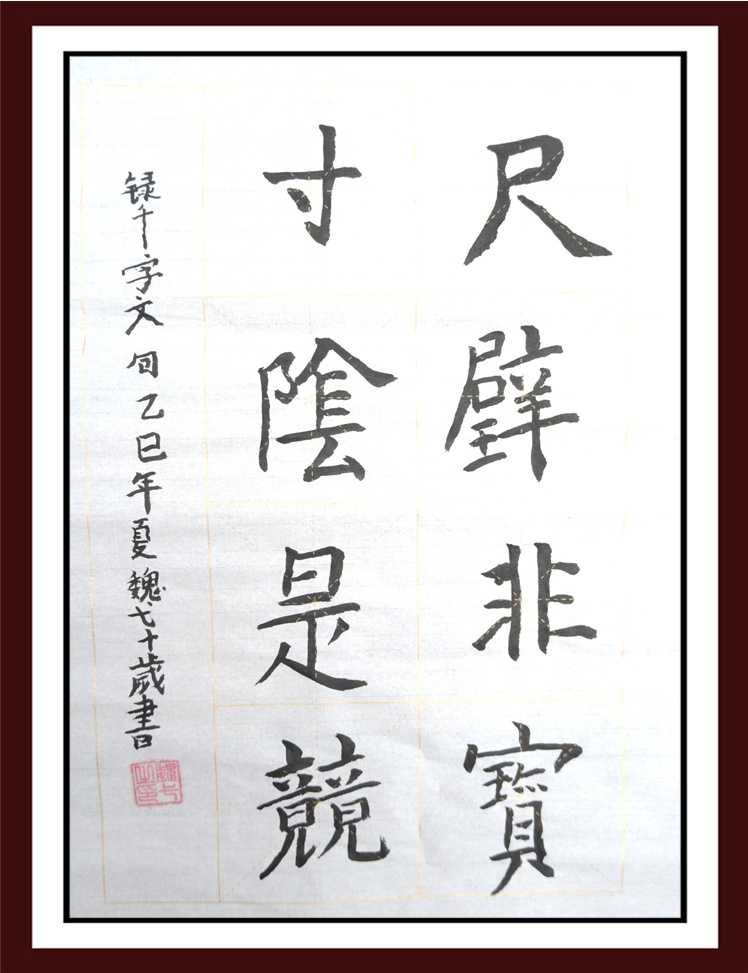 尺璧非寶
寸陰是競
録千字文句乙巳年夏魏七十歲書